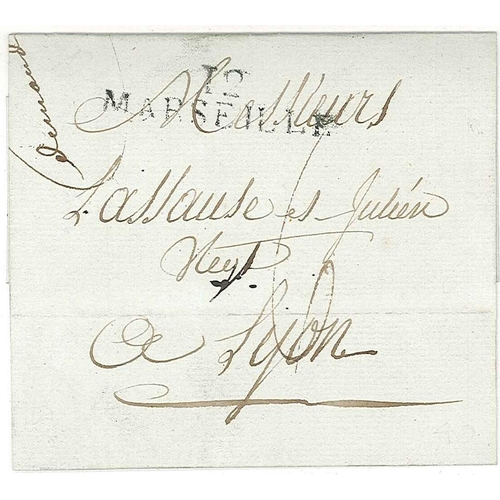 12
MARSEILLE
Messieurs
Lassause et Julien
Negt
a Lyon